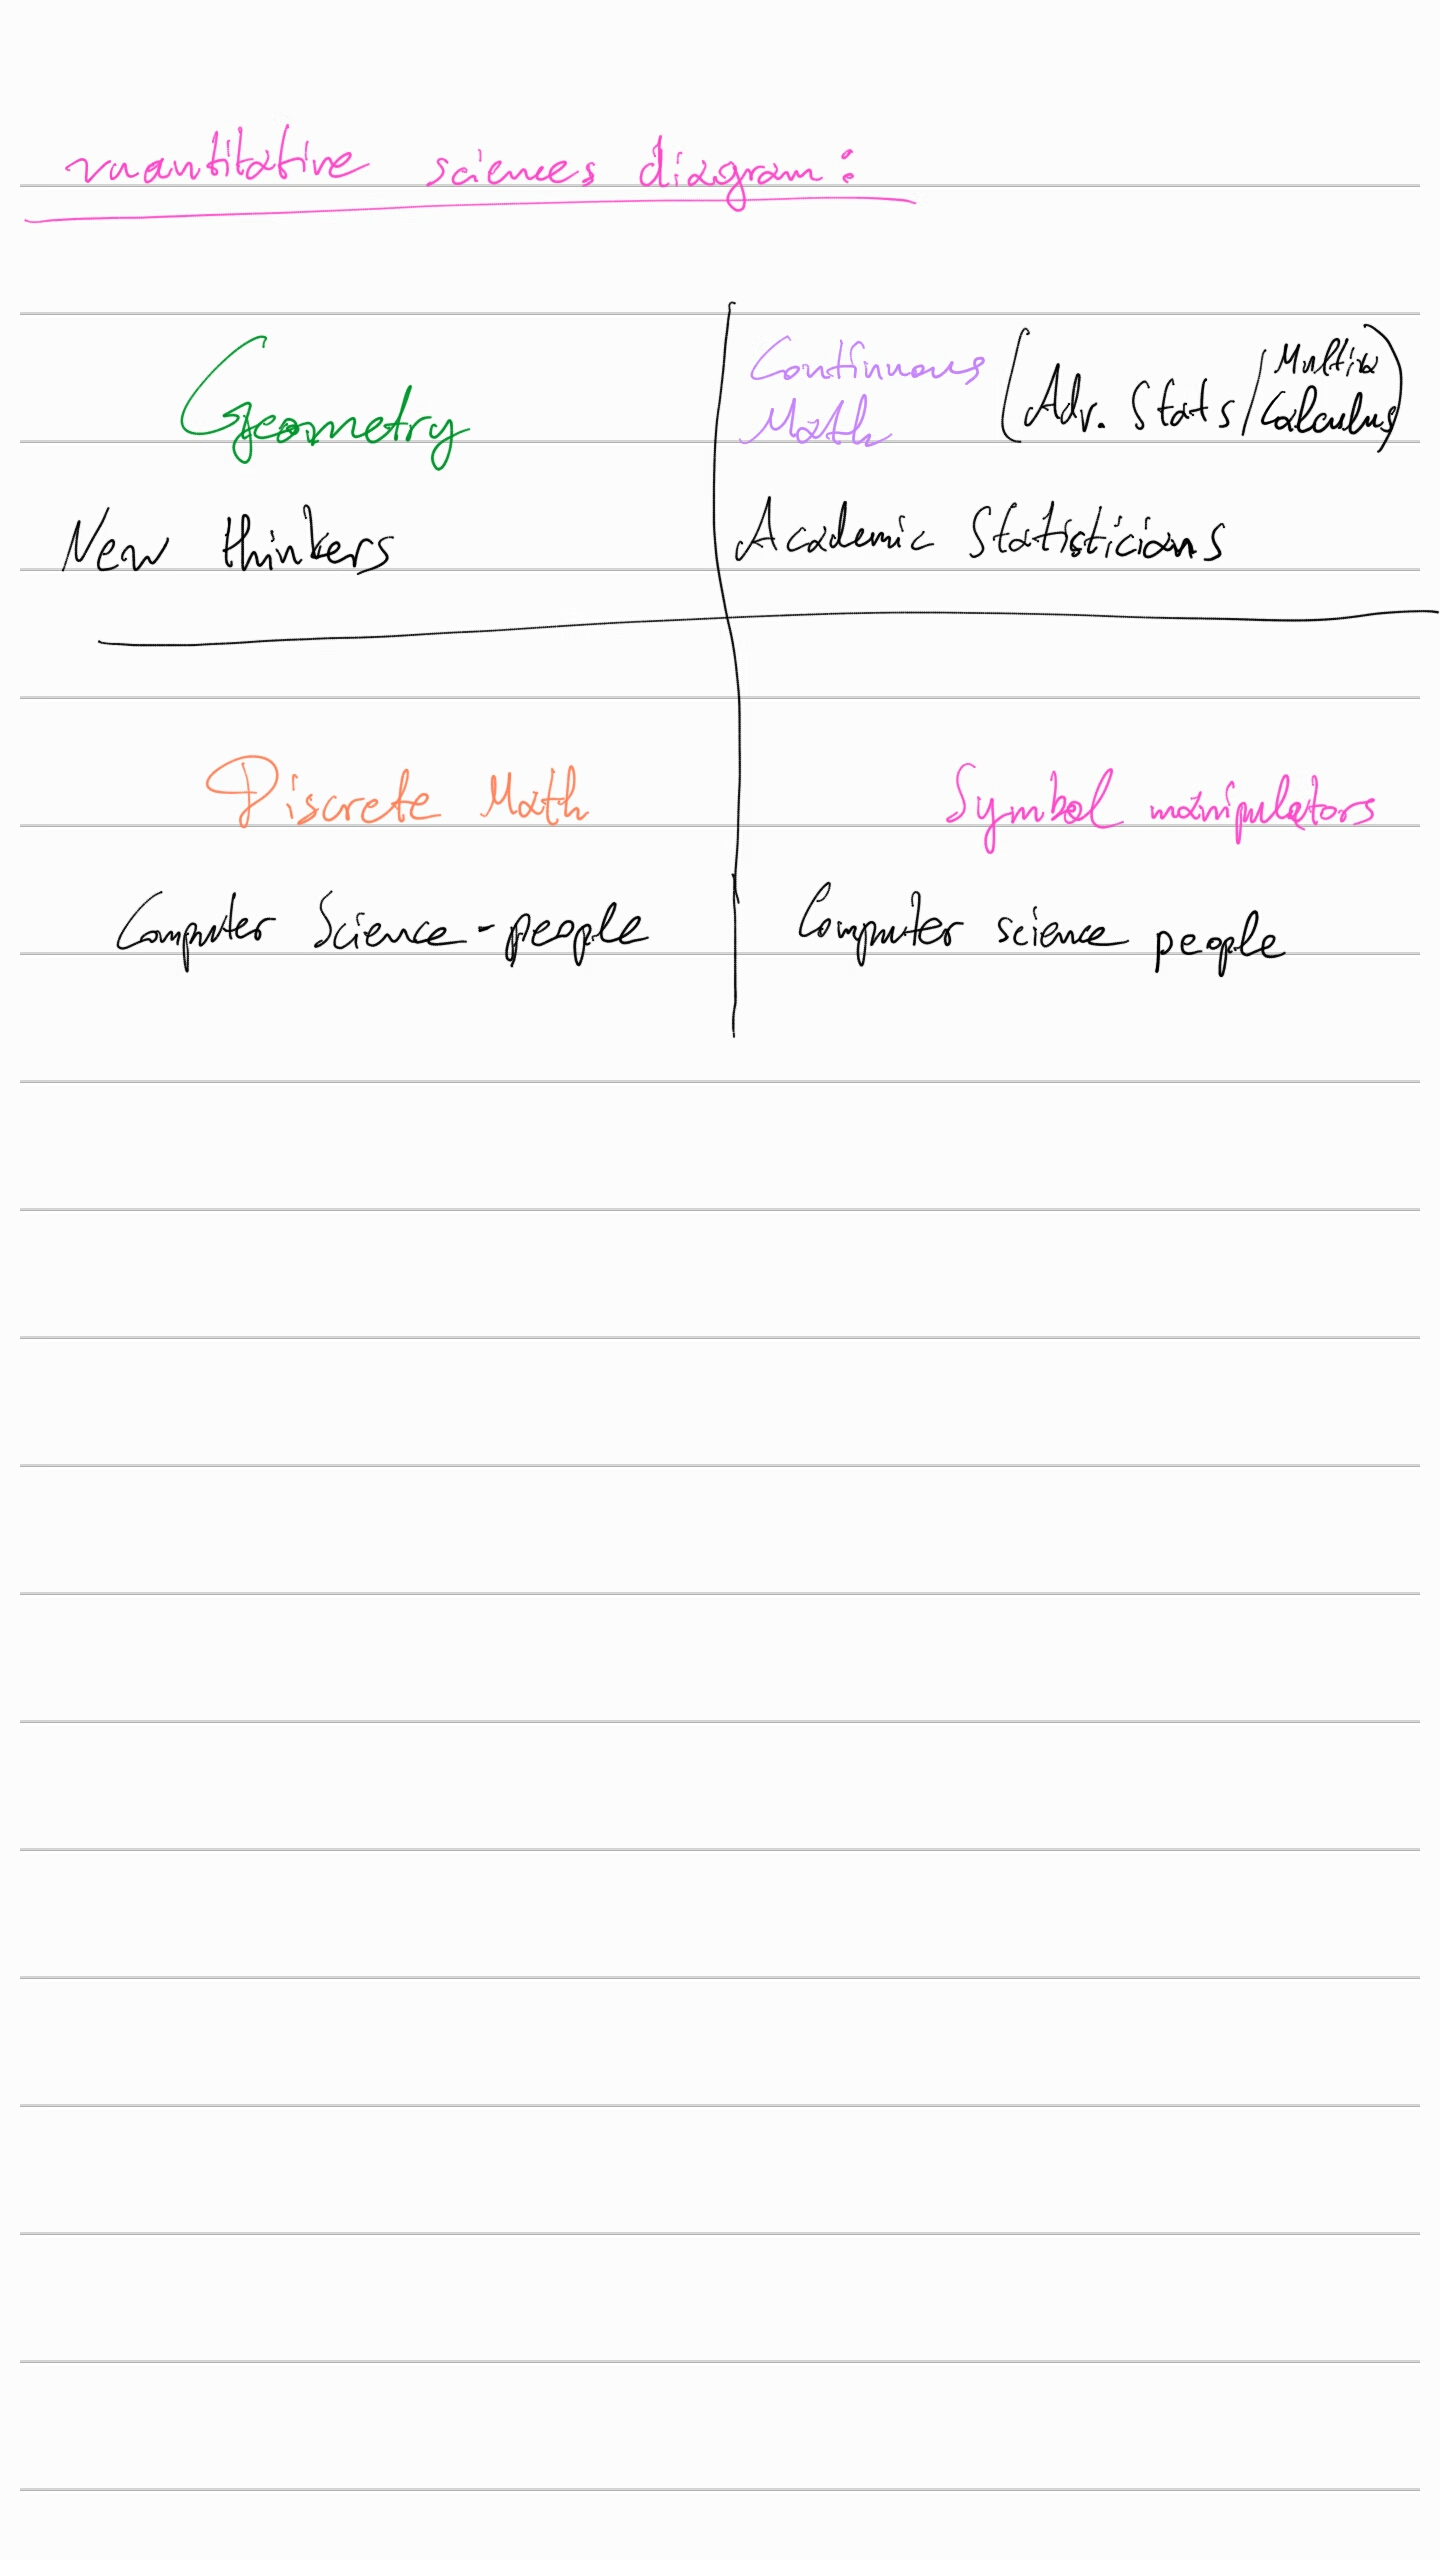 sciences diagram:
Geometry
New thinkers
Continuous Math (Adv. Stats/Multiva Calculus)
Academic Statisticians
Discrete Math
Computer Science-people
Symbol manipulators
Computer science people